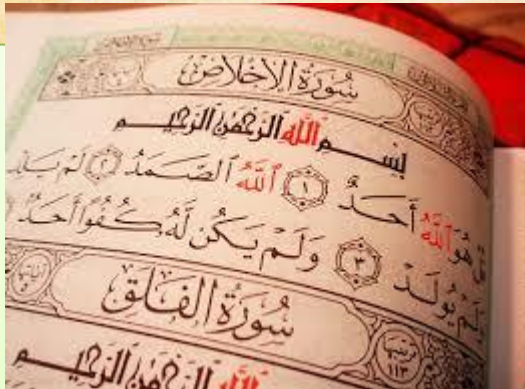 سُورَةُ الإِخْلَاصِ
بِسْمِ ٱللَّهِ ٱلرَّحْمَٰنِ ٱلرَّحِيمِ
قُلْ هُوَ ٱللَّهُ أَحَدٌ ١ ٱللَّهُ ٱلصَّمَدُ ٢ لَمْ يَلِدْ
وَلَمْ يُولَدْ ٣ وَلَمْ يَكُن لَّهُ كُفُوًا أَحَدٌ
سُورَةُ الْفَلَقِ
ترتيبها ١١٣
ٱللَّهِ ٱلرَّحْمَٰنِ ٱلرَّحِيمِ